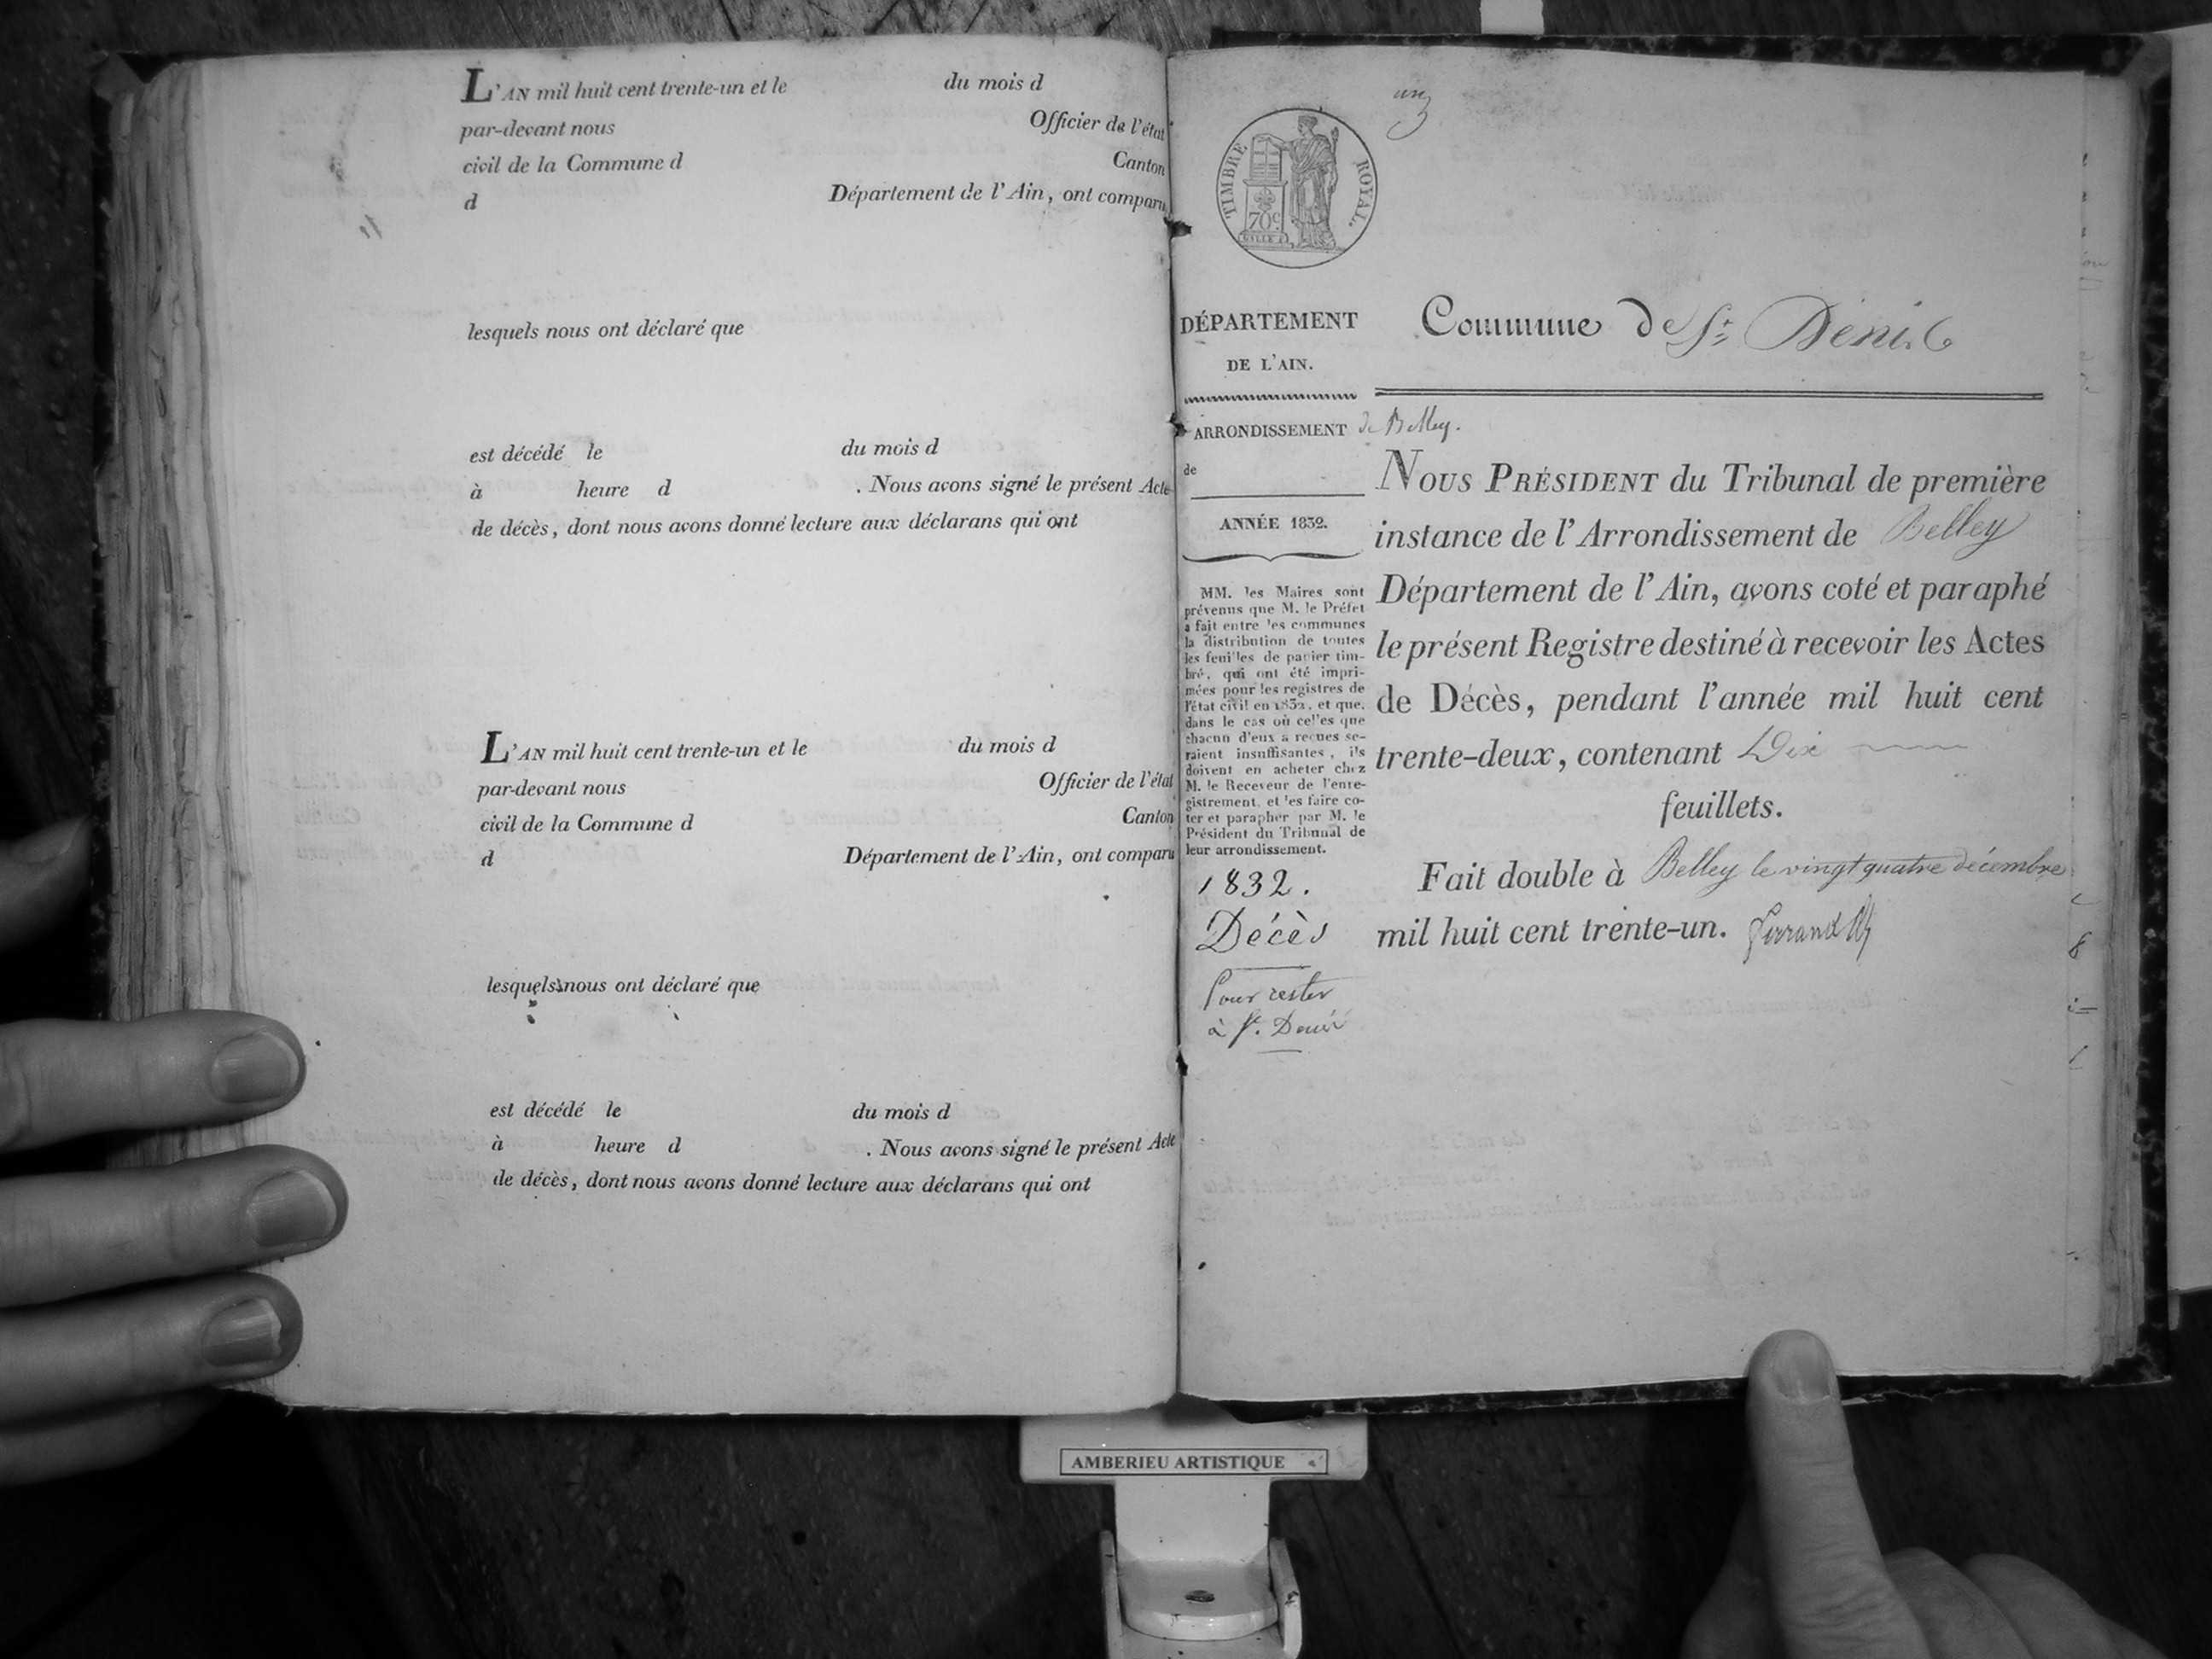 L'AN mil huit cent trente-un et le du mois d
par-devant nous Officier de l'état
civil de la Commune d Canton
d Département de l'Ain, ont comparu
lesquels nous ont déclaré que
est décédé le du mois d
à heure d . Nous avons signé le présent Acte
de décès, dont nous avons donné lecture aux déclarans qui ont
L'AN mil huit cent trente-un et le du mois d
par-devant nous Officier de l'état
civil de la Commune d Canton
d Département de l'Ain, ont comparu
lesquels nous ont déclaré que
est décédé le du mois d
à heure d . Nous avons signé le présent Acte
de décès, dont nous avons donné lecture aux déclarans qui ont
un
TIMBRE ROYAL.
70c
DÉPARTEMENT
DE L'AIN.
ARRONDISSEMENT de Belley.
de
ANNÉE 1832.
MM. les Maires sont
prévenus que M. le Préfet
a fait entre les communes
la distribution de toutes
les feuilles de papier tim-
bré, qui ont été impri-
mées pour les registres de
l'état civil en 1832, et que,
dans le cas où celles que
chacun d'eux a reçues se-
raient insuffisantes, ils
doivent en acheter chez
M. le Receveur de l'enre-
gistrement, et les faire co-
ter et parapher par M. le
Président du Tribunal de
leur arrondissement.
1832.
Décès
Pour rester
à St. Denis
Commune de St. Denis
NOUS PRÉSIDENT du Tribunal de première
instance de l'Arrondissement de Belley
Département de l'Ain, avons coté et paraphé
le présent Registre destiné à recevoir les Actes
de Décès, pendant l'année mil huit cent
trente-deux, contenant Dix
feuillets.
Fait double à Belley le vingt quatre décembre
mil huit cent trente-un.
AMBERIEU ARTISTIQUE